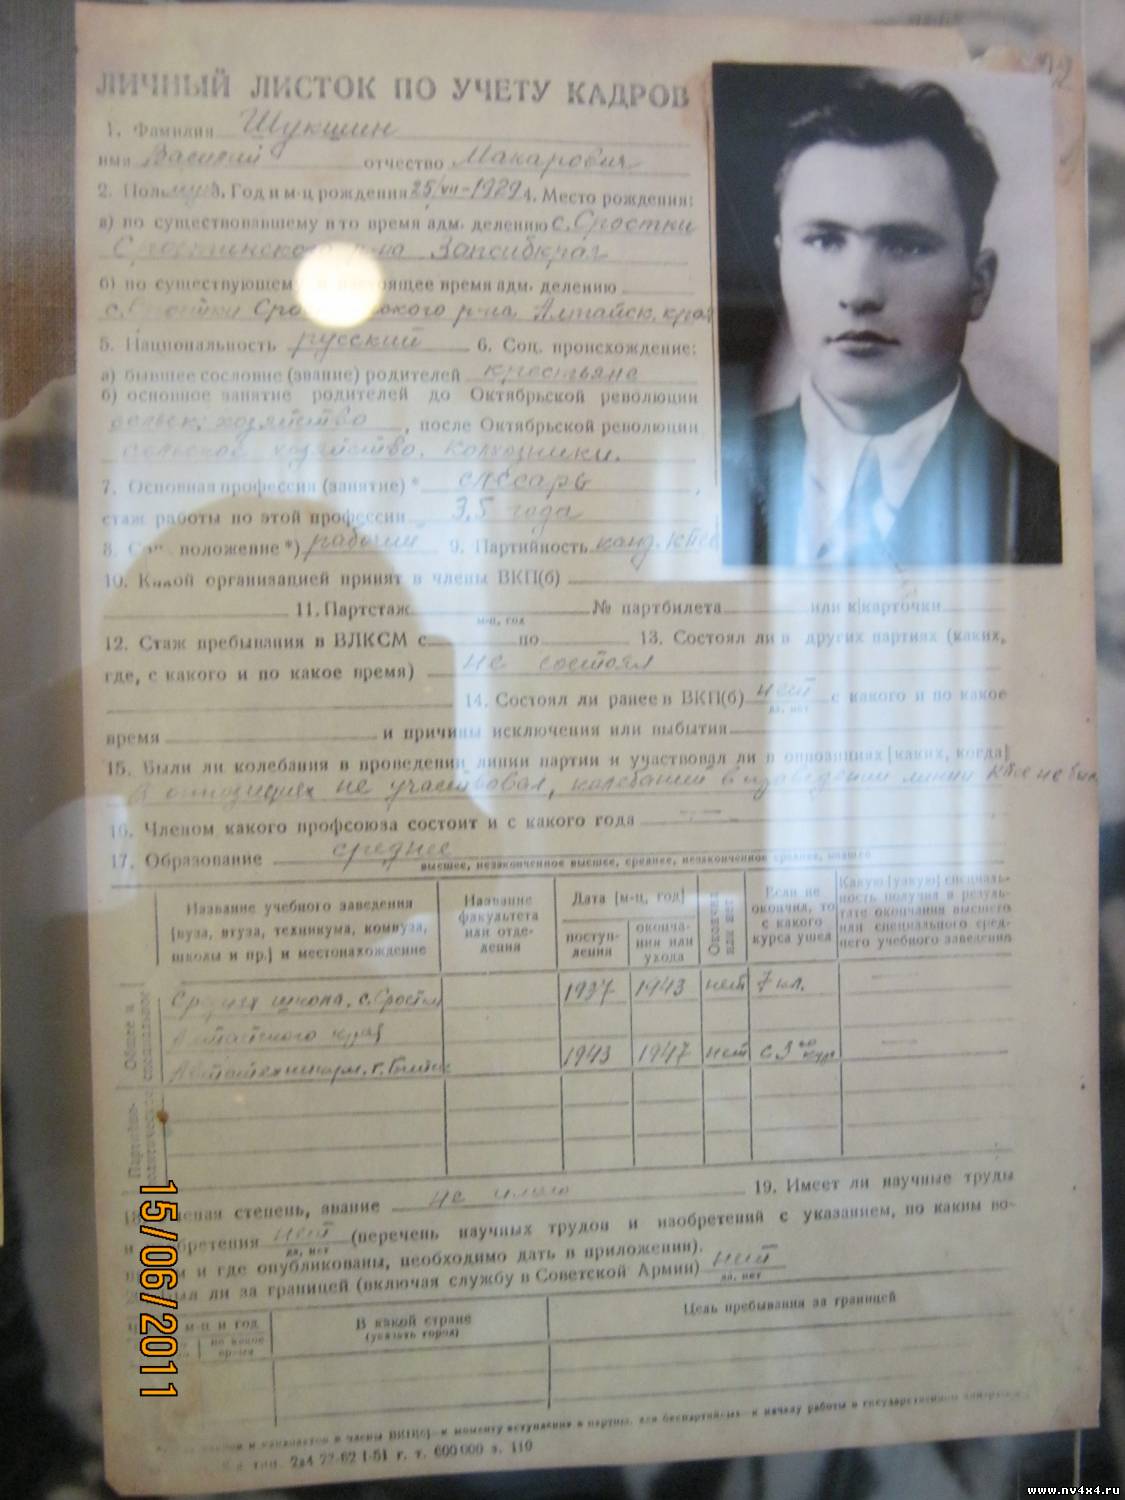 ЛИЧНЫЙ ЛИСТОК ПО УЧЕТУ КАДРОВ
1. Фамилия Шукшин
имя Василий отчество Макарович
2. Пол муж 3. Год и м-ц рождения 25/VII-1929 4. Место рождения:
а) по существовавшему в то время адм. делению с. Сростки
Сростинского р-на Запсибкрая
б) по существующему в настоящее время адм. делению
с. Сростки Сро кого р-на Алтайск. края
5. Национальность русский 6. Соц. происхождение:
а) бывшее сословие (звание) родителей крестьяне
б) основное занятие родителей до Октябрьской революции
сельск. хозяйство, после Октябрьской революции
сельское хозяйство. колхозники.
7. Основная профессия (занятие) * слесарь,
стаж работы по этой профессии 3,5 года
8. Соц. положение *) рабочий 9. Партийность канд.
10. Какой организацией принят в члены ВКП(б)
11. Партстаж № партбилета или к|карточки
м-ц, год
12. Стаж пребывания в ВЛКСМ с по 13. Состоял ли в других партиях (каких,
где, с какого и по какое время) не состоял
14. Состоял ли ранее в ВКП(б) нет с какого и по какое
да, нет
время и причины исключения или выбытия
15. Были ли колебания в проведении линии партии и участвовал ли в оппозициях [каких, когда]
В оппозициях не участвовал, колебаний в проведении линии не было
16. Членом какого профсоюза состоит и с какого года
17. Образование среднее
высшее, незаконченное высшее, среднее, незаконченное среднее, низшее
Название учебного заведения [вуза, втуза, техникума, комвуза, школы и пр.] и местонахождение
Название факультета или отделения
Дата [м-ц, год]
поступления
окончания или ухода
Окончил или нет
Если не окончил, то с какого курса ушел
Какую [узкую] специальность получил в результате окончания высшего или специального среднего учебного заведения
Общее и специальное
Средняя школа, с. Сростки 1937 1943 нет 7 кл. —
Алтайского края
Автотехникум, г. Бийск 1943 1947 нет с 3го кур. —
Партийно-политическое
18. Ученая степень, звание не имею 19. Имеет ли научные труды
и изобретения нет (перечень научных трудов и изобретений с указанием, по каким во-
да, нет
просам и где опубликованы, необходимо дать в приложении).
20. Был ли за границей (включая службу в Советской Армии) нет
да, нет
м-ц и год
по какое время
В какой стране
(указать город)
Цель пребывания за границей
и кандидатов в члены ВКП(б)—к моменту вступления в партию, для беспартийных—к началу работы в государственном
тип. 2з4 77-62 1-51 г. т. 600000 з. 110
15/06/2011
www.nv4x4.ru